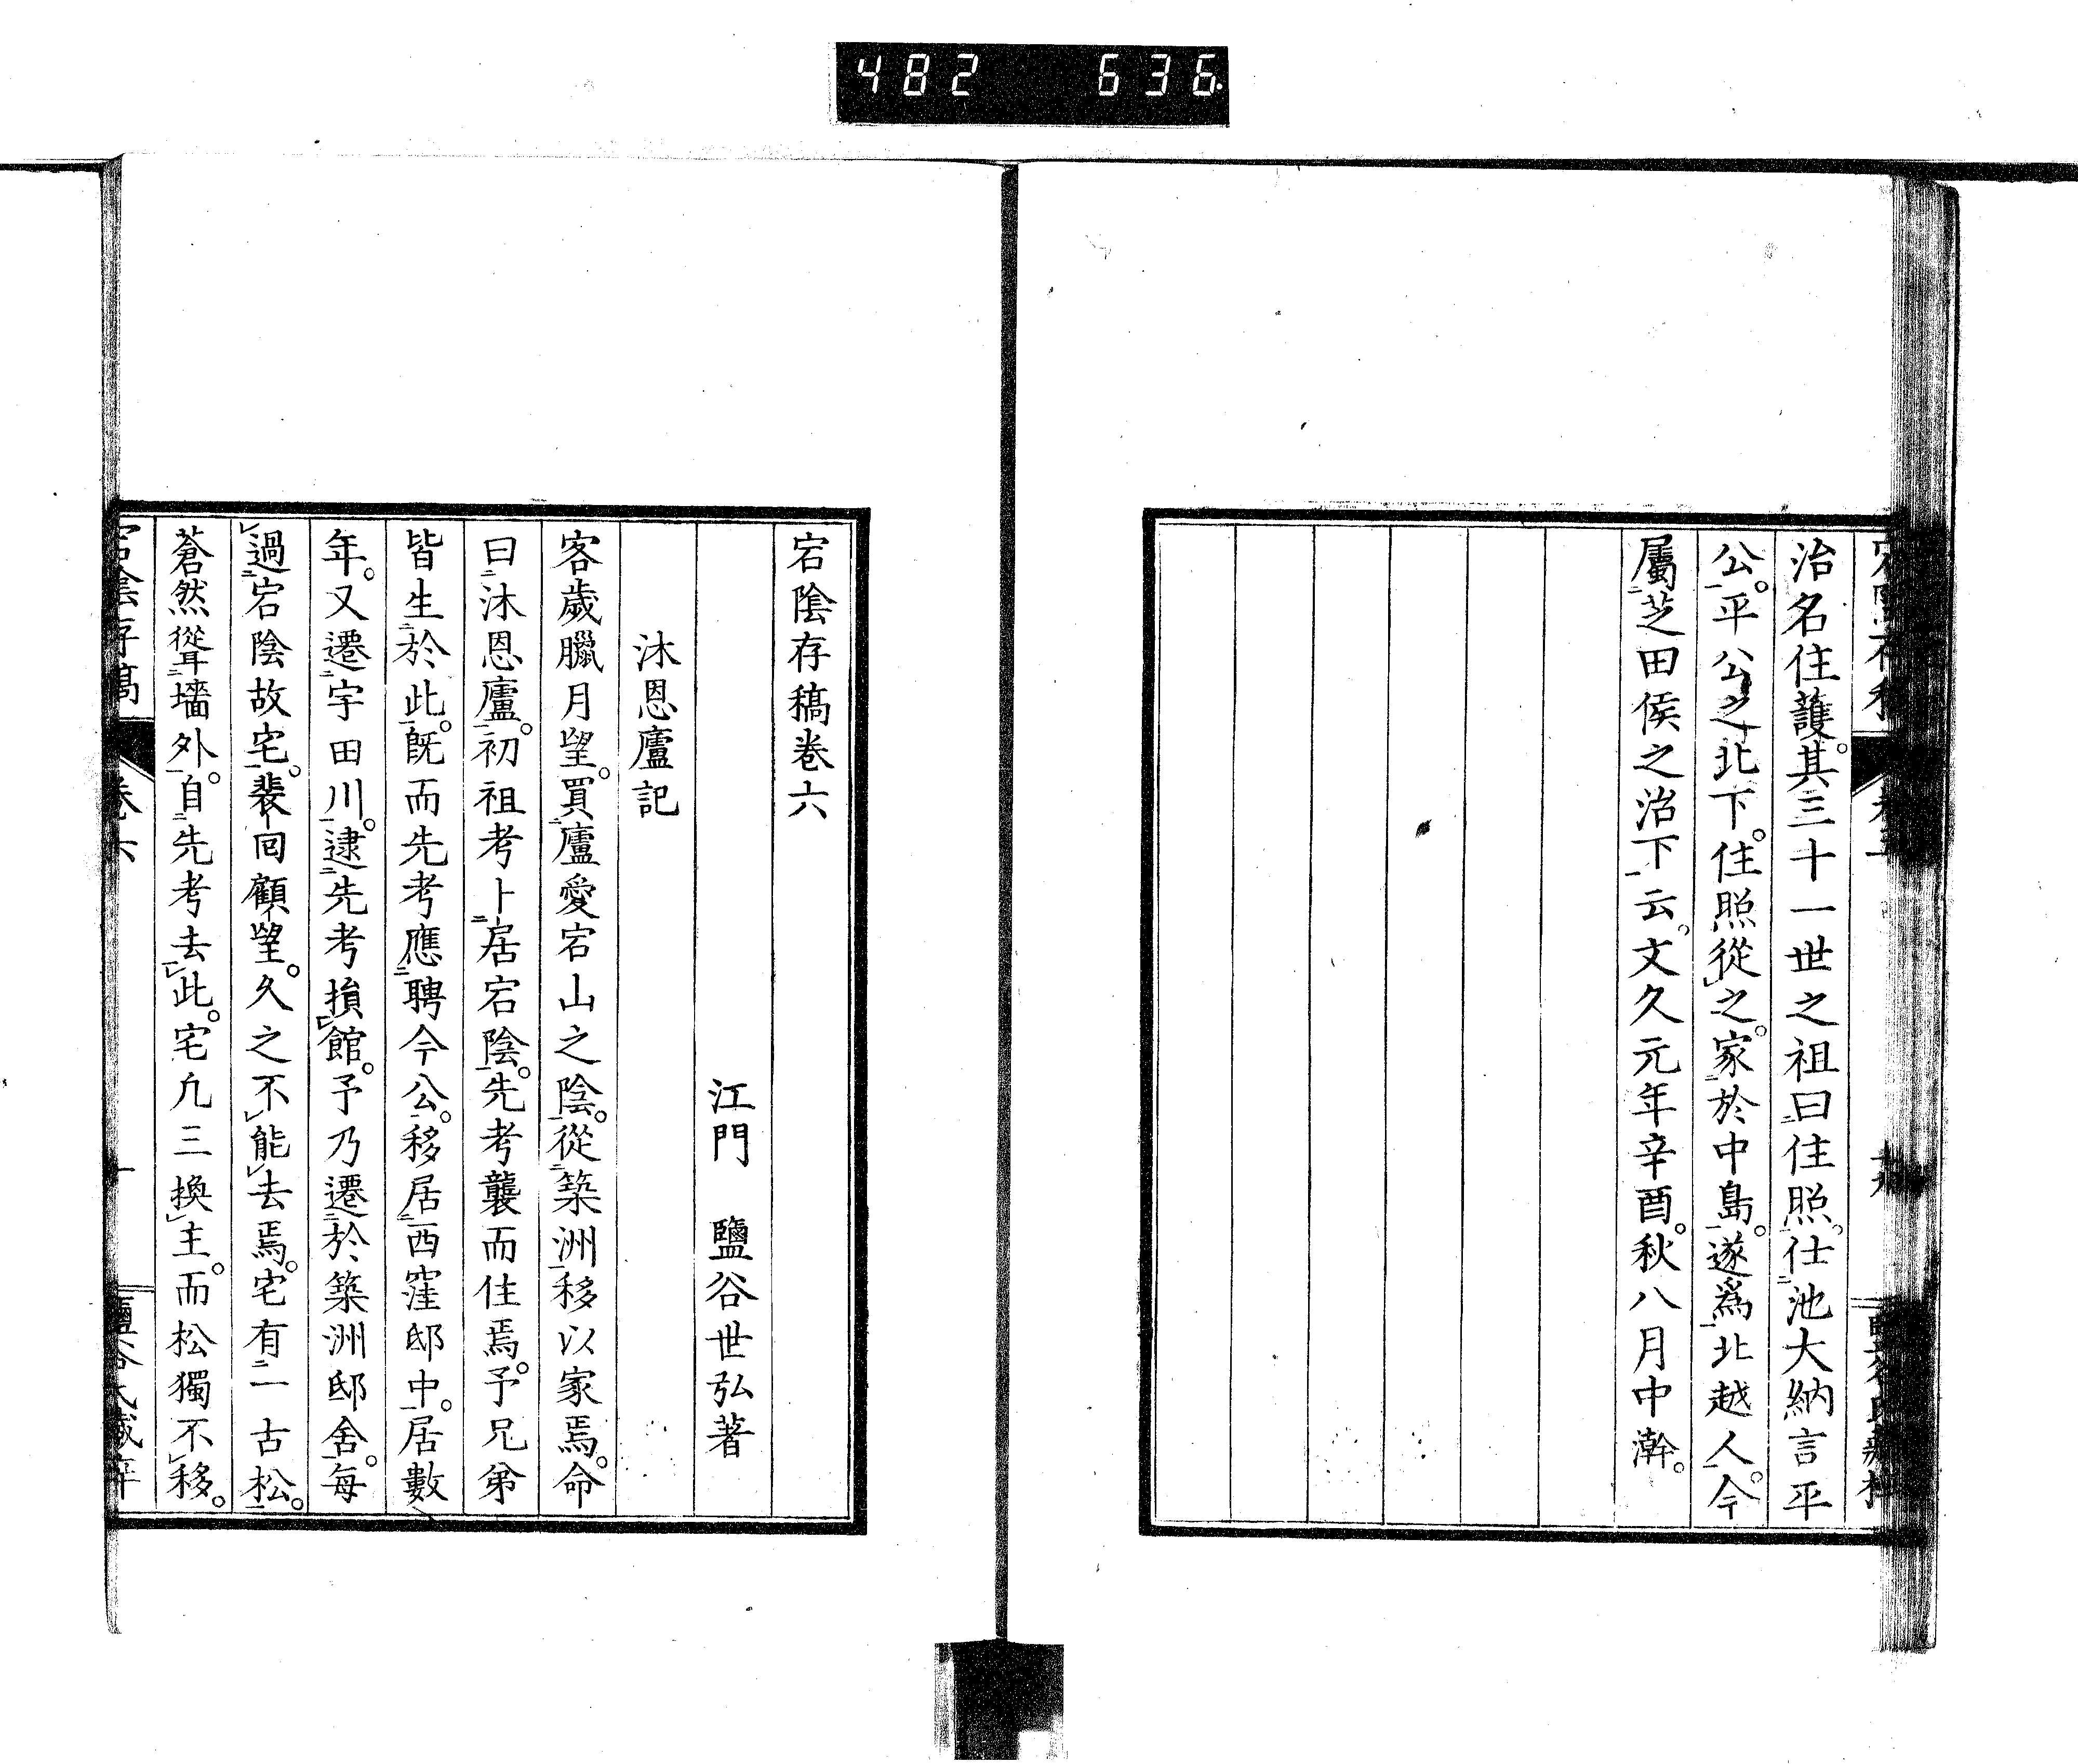 482 636
治名住護。其三十一世之祖曰住照。仕池大納言平
公。平公之北下。住照從之。家於中島。遂爲北越人。今
屬芝田侯之治下云。文久元年辛酉。秋八月中澣。
宕陰存稿卷六
江門 鹽谷世弘著
沐恩廬記
客歲臘月望。買廬愛宕山之陰。從築洲移以家焉。命
曰沐恩廬。初祖考卜居宕陰。先考襲而住焉。予兄弟
皆生於此。既而先考應聘今公。移居西窪邸中。居數
年。又遷宇田川。逮先考損館。予乃遷於築洲邸舍。每
過宕陰故宅。裴回顧望。久之不能去焉。宅有一古松。
蒼然聳墻外。自先考去此。宅凢三換主。而松獨不移。
宕陰存稿 卷六